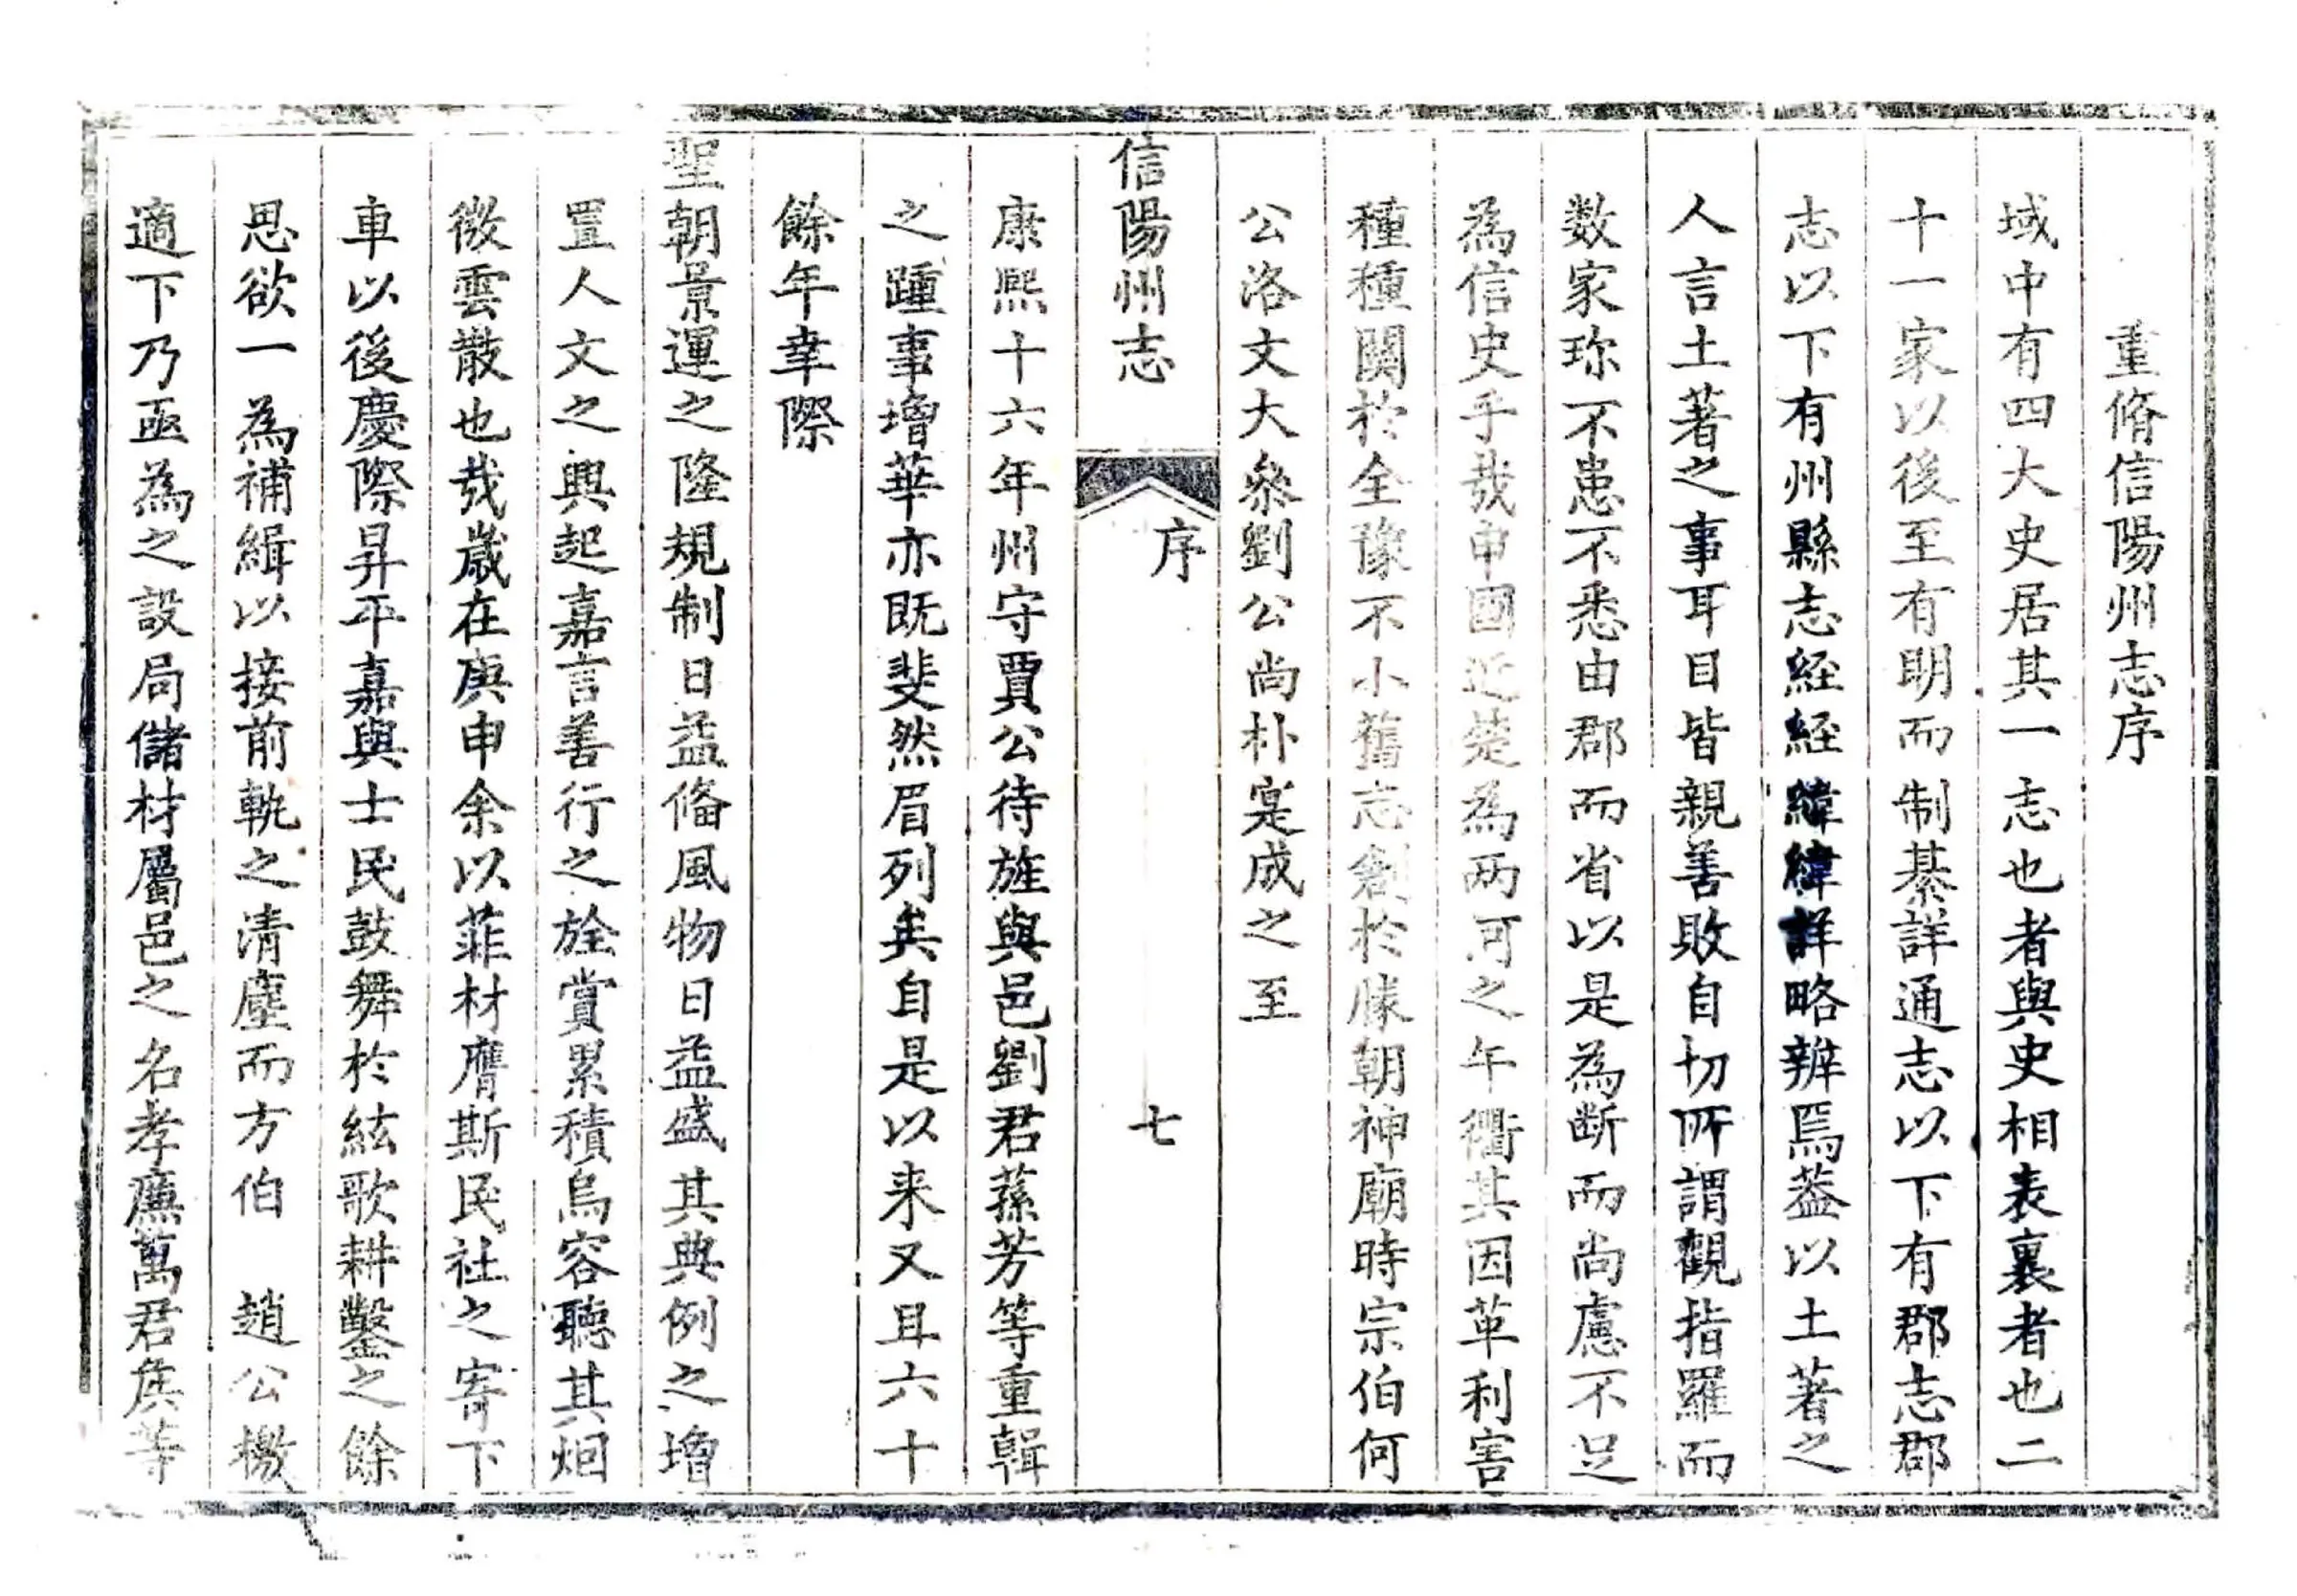 重脩信陽州志序
域中有四大史居其一志也者與史相表裏者也二
十一家以後至有明而制綦詳通志以下有郡志郡
志以下有州縣志経経緯緯詳略辨焉蓋以土著之
人言土著之事耳目皆親善敗自切所謂觀指羅而
数家珎不患不悉由郡而省以是為断而尚慮不足
為信史乎哉申國近楚為两河之午衢其因革利害
種種関於全豫不小舊志創於勝朝神廟時宗伯何
公洛文大叅劉公尚朴寔成之至
信陽州志
序
七
康熙十六年州守賈公待旌與邑劉君蓀芳等重輯
之踵事增華亦既斐然眉列矣自是以来又且六十
餘年幸際
聖朝景運之隆規制日益俻風物日益盛其典例之增
置人文之興起嘉言善行之旌賞累積烏容聽其烟
微雲散也哉歲在庚申余以菲材膺斯民社之寄下
車以後慶際昇平嘉與士民鼓舞於絃歌耕鑿之餘
思欲一為補緝以接前軌之清塵而方伯　趙公檄
適下乃亟為之設局儲材屬邑之名孝廉萬君矦等